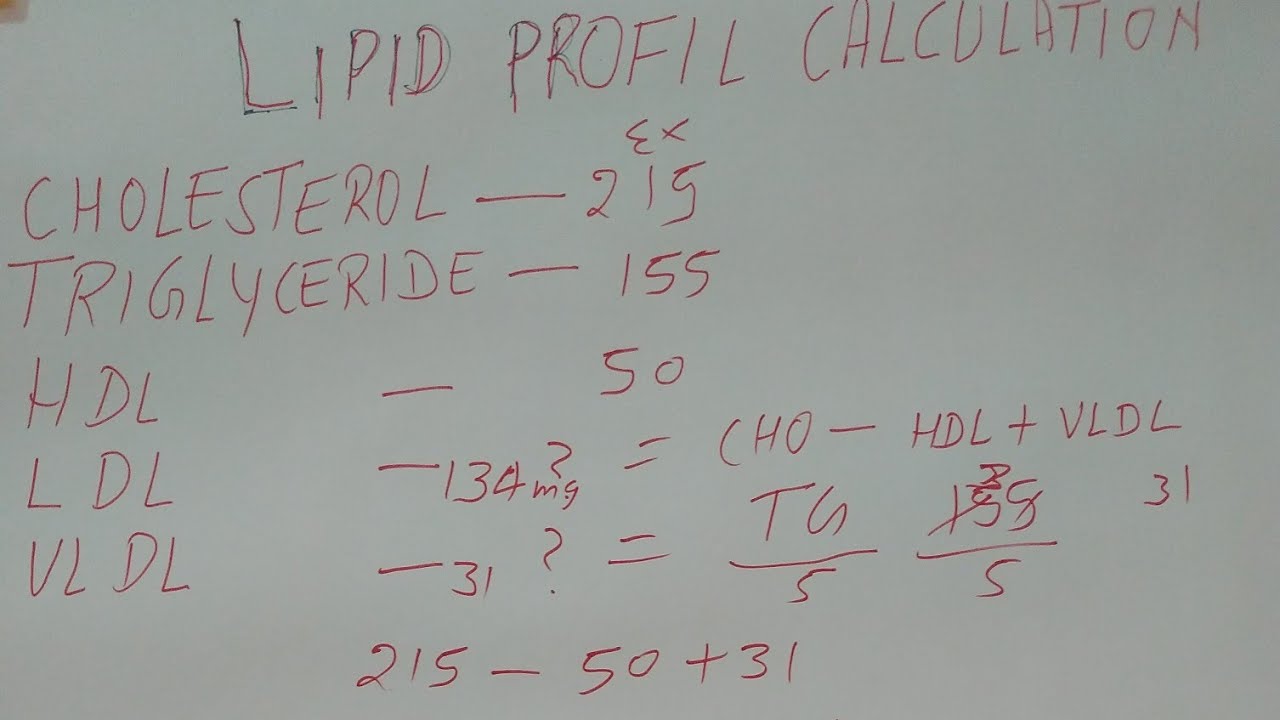 LIPID PROFIL CALCULATION
Ex
CHOLESTEROL — 215
TRIGLYCERIDE — 155
HDL — 50
LDL — 134mg ? = CHO — HDL + VLDL
VLDL — 31 ? = TG/5 155/5 31
215 — 50 + 31